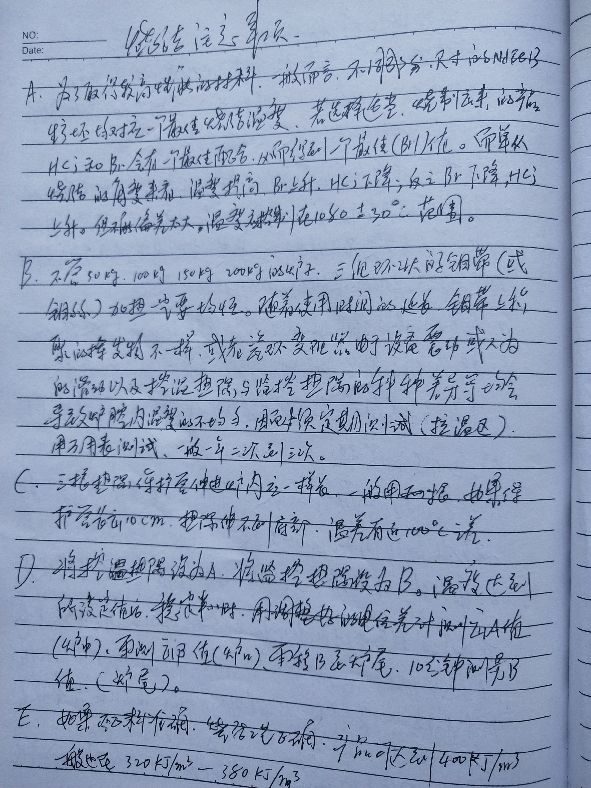 NO:
Date:
烧结注意事项.
A. 为了取得较高性能的材料. 一般而言. 不同部分. 尺寸的NdFeB
生坯均对应一个最佳烧结温度. 若选择适当. 烧制出来的产品
Hcj和Br会有一个最佳配合. 从而得到一个最佳(BH)值。而单从
烧结的角度来看. 温度提高 Br上升. Hcj下降; 反之 Br下降, Hcj
上升。但不能偏差太大。温度应控制在1080±30℃范围。
B. 不管50kg. 100kg 150kg 200kg的炉子. 三组环状的钼带(或
钼丝)加热一定要均恒。随着使用时间的延长. 钼带上
的挥发物不一样. 或者 变压器由于设备震动或人为
的 以及控温热偶与监控热偶的 差异等均会
导致炉膛内温度的不均匀, 因此必须定期测试(控温区).
用万用表测试. 一般一年二次到三次。
C. 三根热偶保护管伸进炉内应一样长. 一般用 如果保
护管长出10cm. 热偶伸不到底部. 温差有近100℃之差.
D. 将控温热偶设为A. 将监控热偶设为B。温度达到
所设定值后. 稳定 小时. 用 的电位差计测出A值
(炉中). 再测出B值(炉口). 再移B至炉尾. 10分钟测完B
值. (炉尾)。
E. 如果 料准确. 烧结工艺正确. 产品可达到400KJ/m³
一般也在 320KJ/m³ — 380KJ/m³